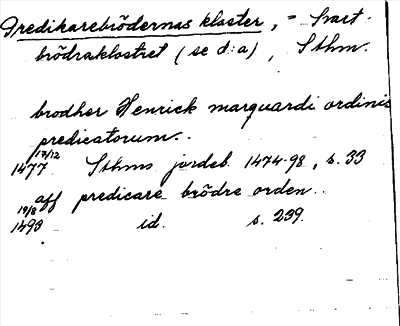 Predikarebrödernas kloster, = Svart-
brödraklostret (se d:a), Sthm.
brodher Henrick marquardi ordinis
predicatorum..
17/12
1477 Sthms jordeb. 1474-98, s. 33
aff predicare brödre orden..
19/8
1493 id. s. 239.